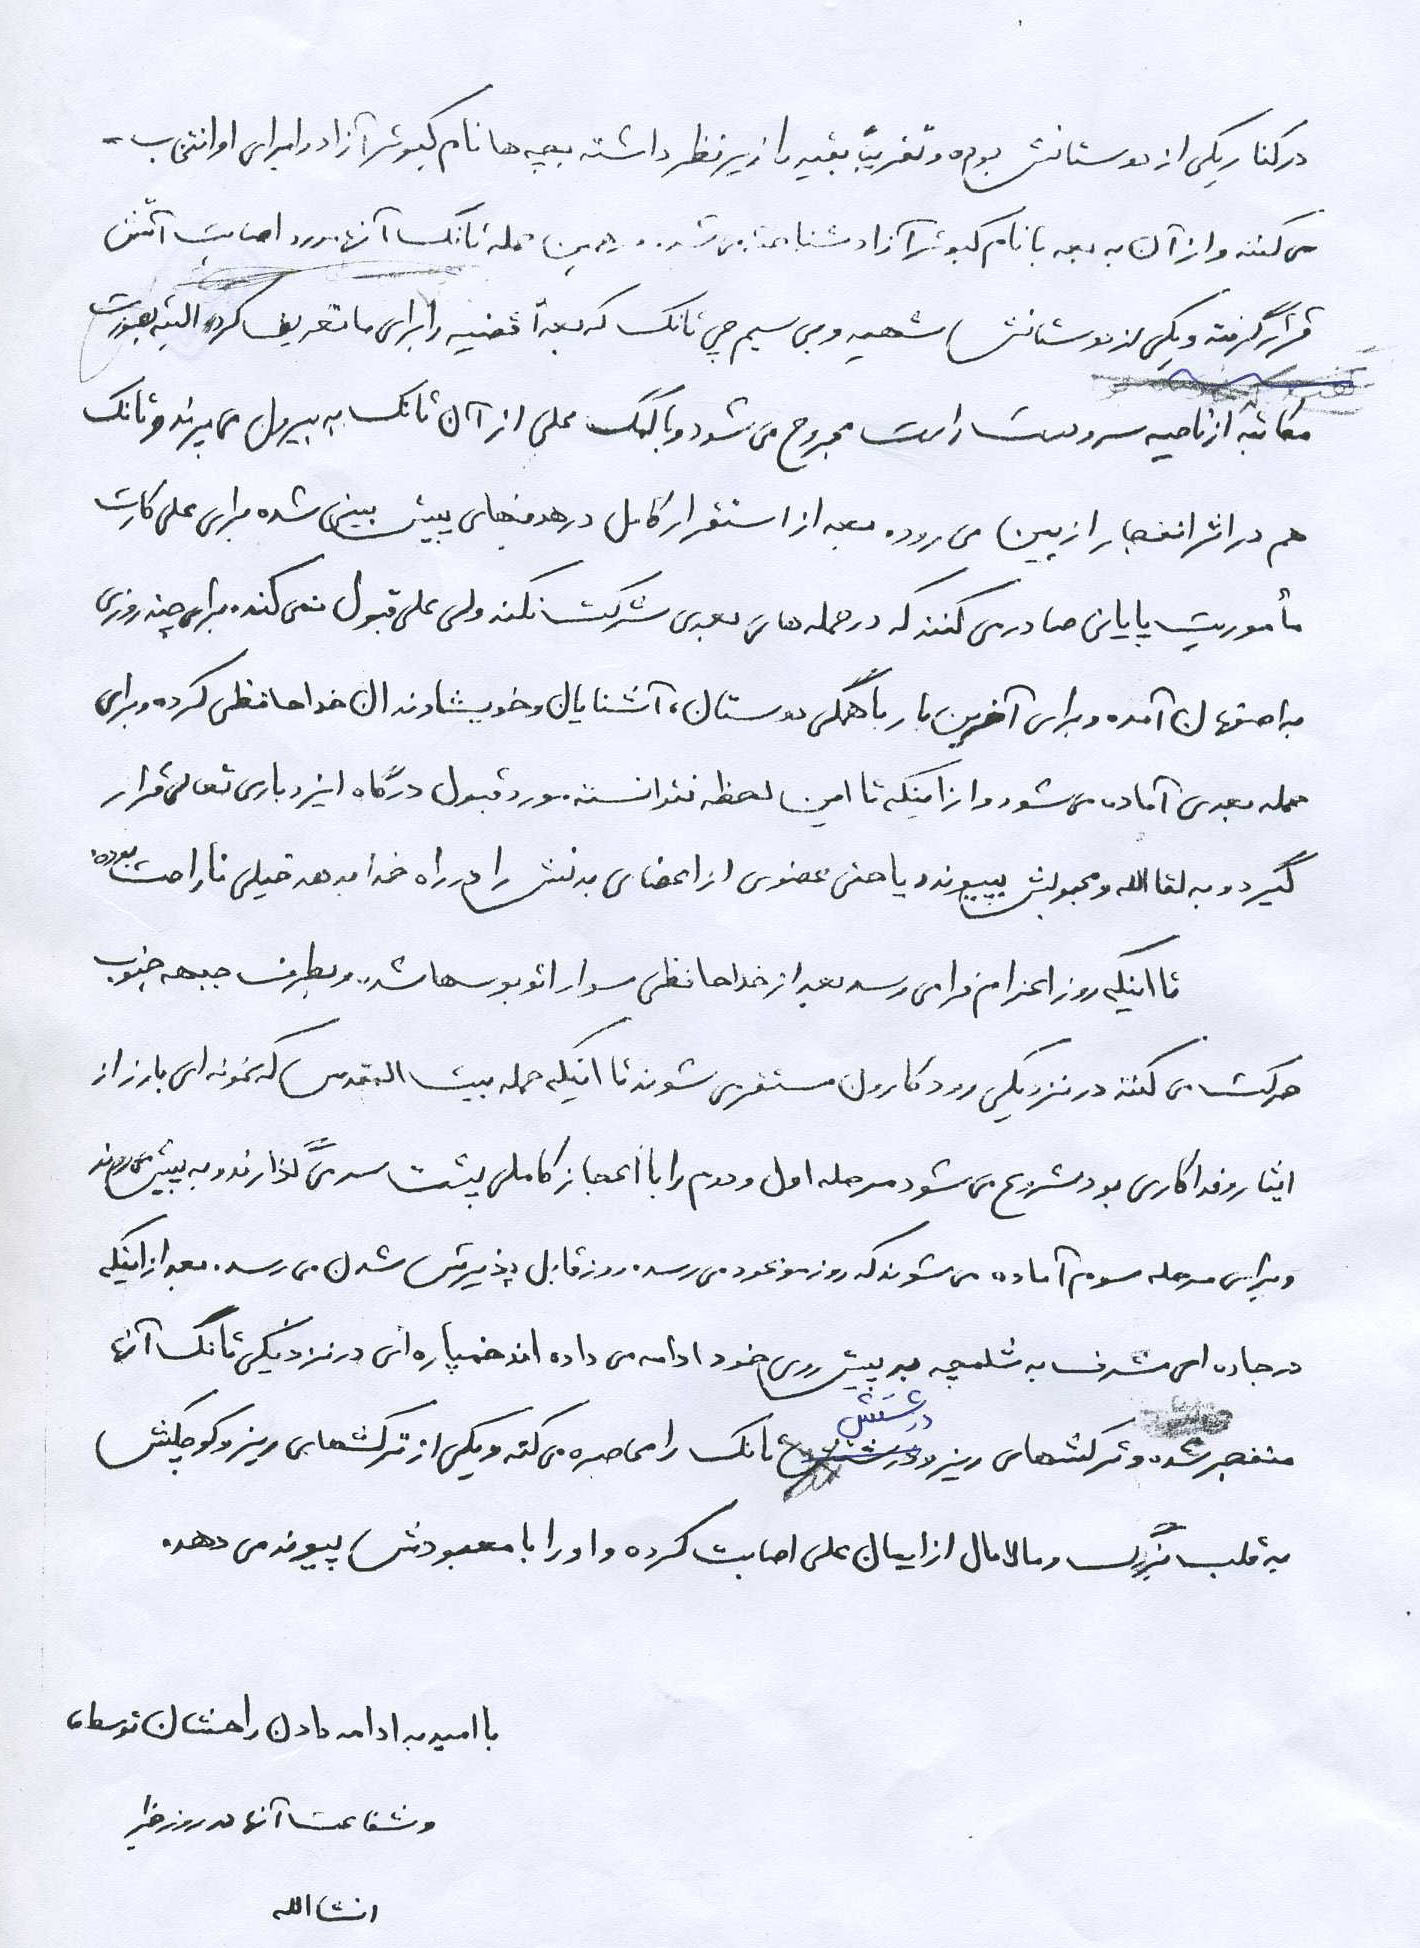 در کنار یکی از دوستانش بوده و تقریباً بقیه را زیر نظر داشته بچه ها نام کبوتر آزاد را برای او انتخاب -
می کنند و از آن به بعد با نام کبوتر آزاد شناخته می شد. در همین حمله تانک آنها مورد اصابت آتش
قرار گرفته و یکی از دوستانش شهید و بی سیم چی تانک که بعداً قضیه را برای ما تعریف کرد، البته بصورت
مکاتبه از ناحیه سر و دست راست مجروح می شود و با کمک علی از آن تانک به بیرون می پرند و تانک
هم در اثر انفجار از بین می رود. بعد از استقرار کامل در هدفهای پیش بینی شده برای علی کارت
مأموریت پایانی صادر می کنند که در حمله های بعدی شرکت نکند ولی علی قبول نمی کند. برای چند روزی
به اصفهان آمده و برای آخرین بار با همگی دوستان، آشنایان و خویشاوندان خداحافظی کرده و برای
حمله بعدی آماده می شود و از اینکه تا این لحظه نتوانسته مورد قبول درگاه ایزد باری تعالی قرار
گیرد و به لقاالله و محبوبش بپیوندد یا حتی عضوی از اعضای بدنش را در راه خدا بدهد خیلی ناراحت بوده.
تا اینکه روز اعزام فرا می رسد بعد از خداحافظی سوار اتوبوسها شد. و بطرف جبهه جنوب
حرکت می کنند در نزدیکی رود کارون مستقر می شوند تا اینکه حمله بیت المقدس که نمونه ای بارز از
ایثار و فداکاری بود شروع می شود مرحله اول و دوم را با اعجاز کاملی پشت سر می گذارند و به پیش می روند
و برای مرحله سوم آماده می شوند که روز موعود می رسد. روز قابل پذیرش شدن می رسد. بعد از اینکه
در جاده ای مشرف به شلمچه به پیش روی خود ادامه می داده اند خمپاره ای در نزدیکی تانک آنها
منفجر شده و ترکشهای ریز و درشتش تانک را محاصره می کند و یکی از ترکشهای ریز و کوچکش
به قلب بزرگ و مالامال از ایمان علی اصابت کرده و او را با معبودش پیوند می دهد.
با امید به ادامه دادن راهشان توسط ما
و شفاعت آنها در روز جزا
انشاالله